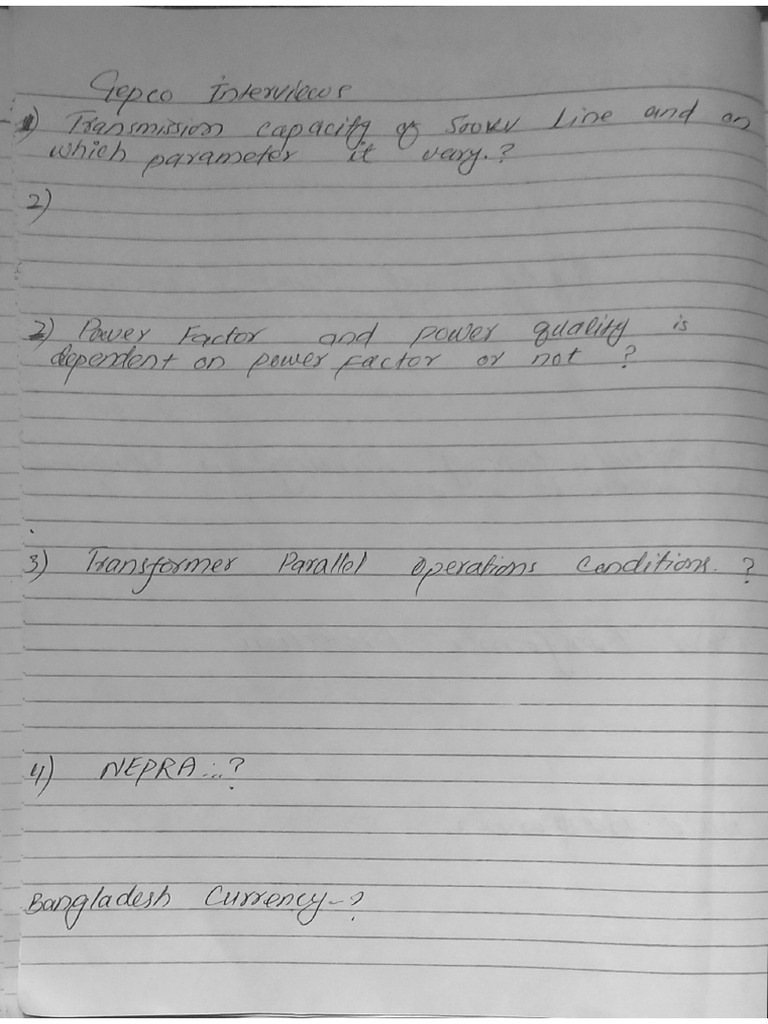 Gepco Interviews
1) Transmission capacity of 500kv Line and on
which parameter it vary.?
2)
2) Power Factor and power quality is
dependent on power factor or not ?
3) Transformer Parallel operations Conditions. ?
4) NEPRA...?
Bangladesh Currency-?